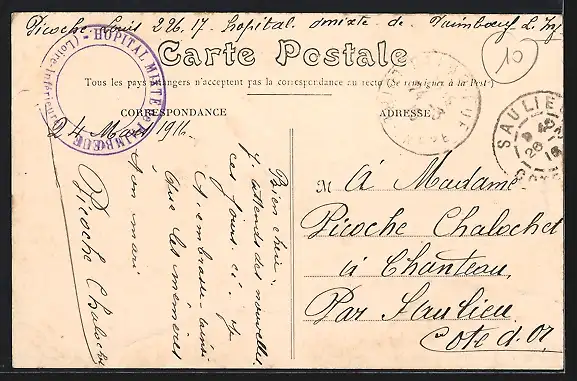 Picoche Louis 226. 17. hopital mixte de Paimboeuf L. Inf
Carte Postale
Tous les pays étrangers n'acceptent pas la correspondance au recto (Se renseigner à la Poste)
CORRESPONDANCE
ADRESSE
HOPITAL MIXTE de PAIMBŒUF
(Loire-Inférieure)
SAULIEU
24 Mars 1916
Bien chère
J'attends des nouvelles
ces jours-ci. Je
t'embrasse ainsi
que les mémères
ton mari
Picoche Chalochet
M À Madame
Picoche Chalochet
à Chanteau
Par Saulieu
Cote d. Or